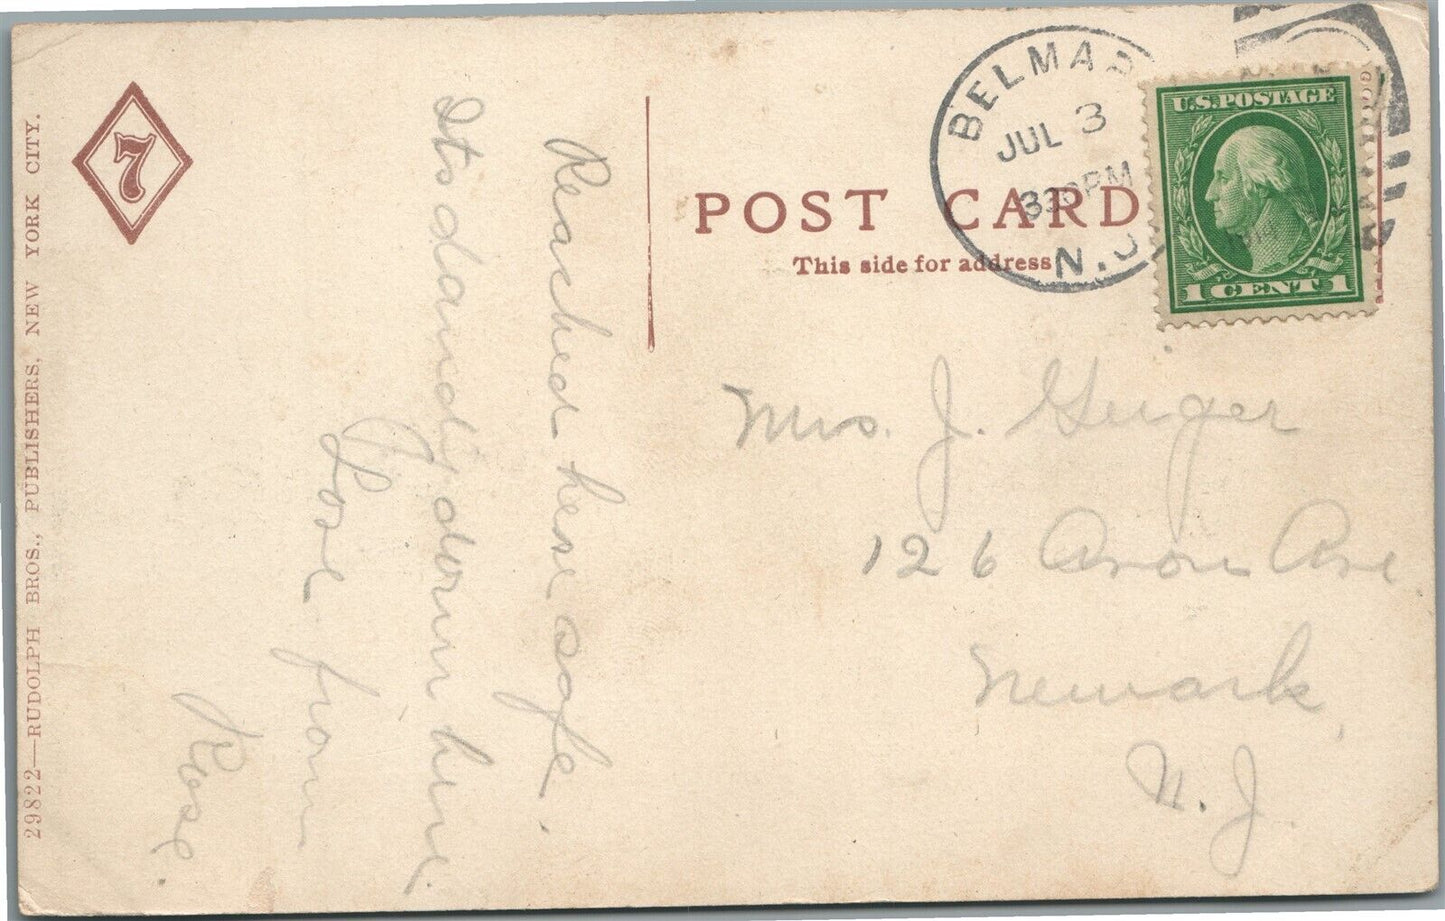 29822—RUDOLPH BROS., PUBLISHERS, NEW YORK CITY.
7
Reached here safe.
Its dandy down here.
Love from
Rose.
POST CARD
This side for address
BELMAR
JUL 3
330PM
N.J.
U.S. POSTAGE
1 CENT 1
Mrs. J. Geiger
126 Avon Ave
Newark,
N. J.